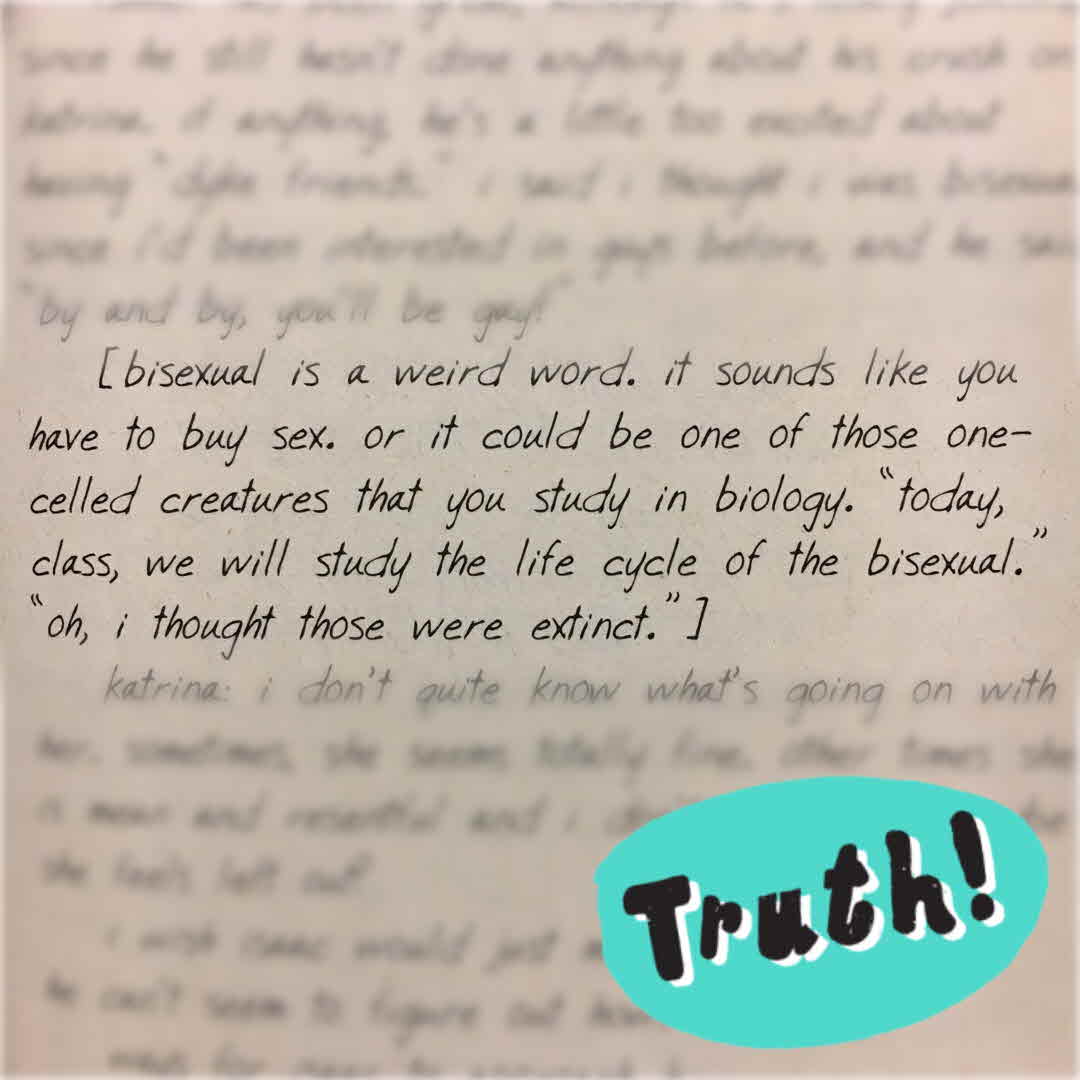 since he still hasn't done anything about his crush on
katrina. if anything, he's a little too excited about
having "dyke friends." i said i thought i was
since i'd been interested in guys before, and he
"by and by, you'll be gay!"
[bisexual is a weird word. it sounds like you
have to buy sex. or it could be one of those one-
celled creatures that you study in biology. "today,
class, we will study the life cycle of the bisexual."
"oh, i thought those were extinct."]
katrina: i don't quite know what's going on with
her. sometimes, she seems totally fine. other times she
is mean and resentful and i
she feels left out.
i wish isaac would just
he can't seem to figure out how
Truth!